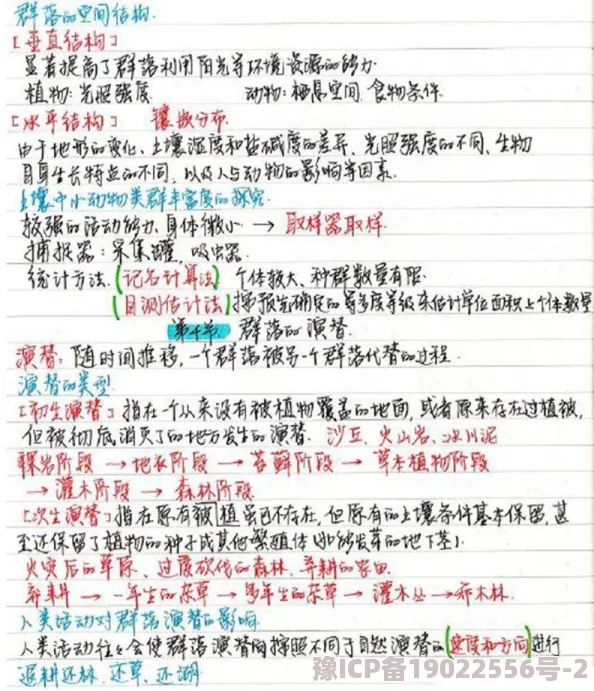 群落的空间结构.
[垂直结构]
显著提高了群落利用阳光等环境资源的能力
植物:光照强度 动物:栖息空间、食物条件.
[水平结构] 镶嵌分布.
由于地形的变化、土壤湿度和盐碱度的差异、光照强度的不同、生物
自身生长特点的不同,以及人与动物的影响等因素.
土壤中小动物类群丰富度的探究.
较强的活动能力、身体微小 → 取样器取样.
捕捉器:采集罐,吸虫器.
统计方法.(记名计算法) 个体较大、种群数量有限.
(目测估计法)按预先确定的多度等级来估计单位面积上个体数量
群落的演替.
演替:随时间推移,一个群落被另一个群落代替的过程.
演替的类型
[初生演替]指在一个从来没有被植物覆盖的地面,或者原来存在过植被,
但被彻底消灭了的地方发生的演替. 沙丘、火山岩、冰川泥
裸岩阶段 → 地衣阶段 → 苔藓阶段 → 草本植物阶段
→ 灌木阶段 → 森林阶段
[次生演替]指在原有植虽已不存在,但原有的土壤条件基本保留,甚
至还保留了植物的种子或其他繁殖体(如能发芽的地下茎).
火灾后的草原、过度砍伐的森林、弃耕的农田.
弃耕 → 一年生的杂草 → 多年生的杂草 → 灌木丛 → 乔木林.
人类活动对群落演替的影响
人类活动往往会使群落演替向按照不同于自然演替的(速度和方向)进行
退耕还林、还草、还湖
豫ICP备19022556号-2